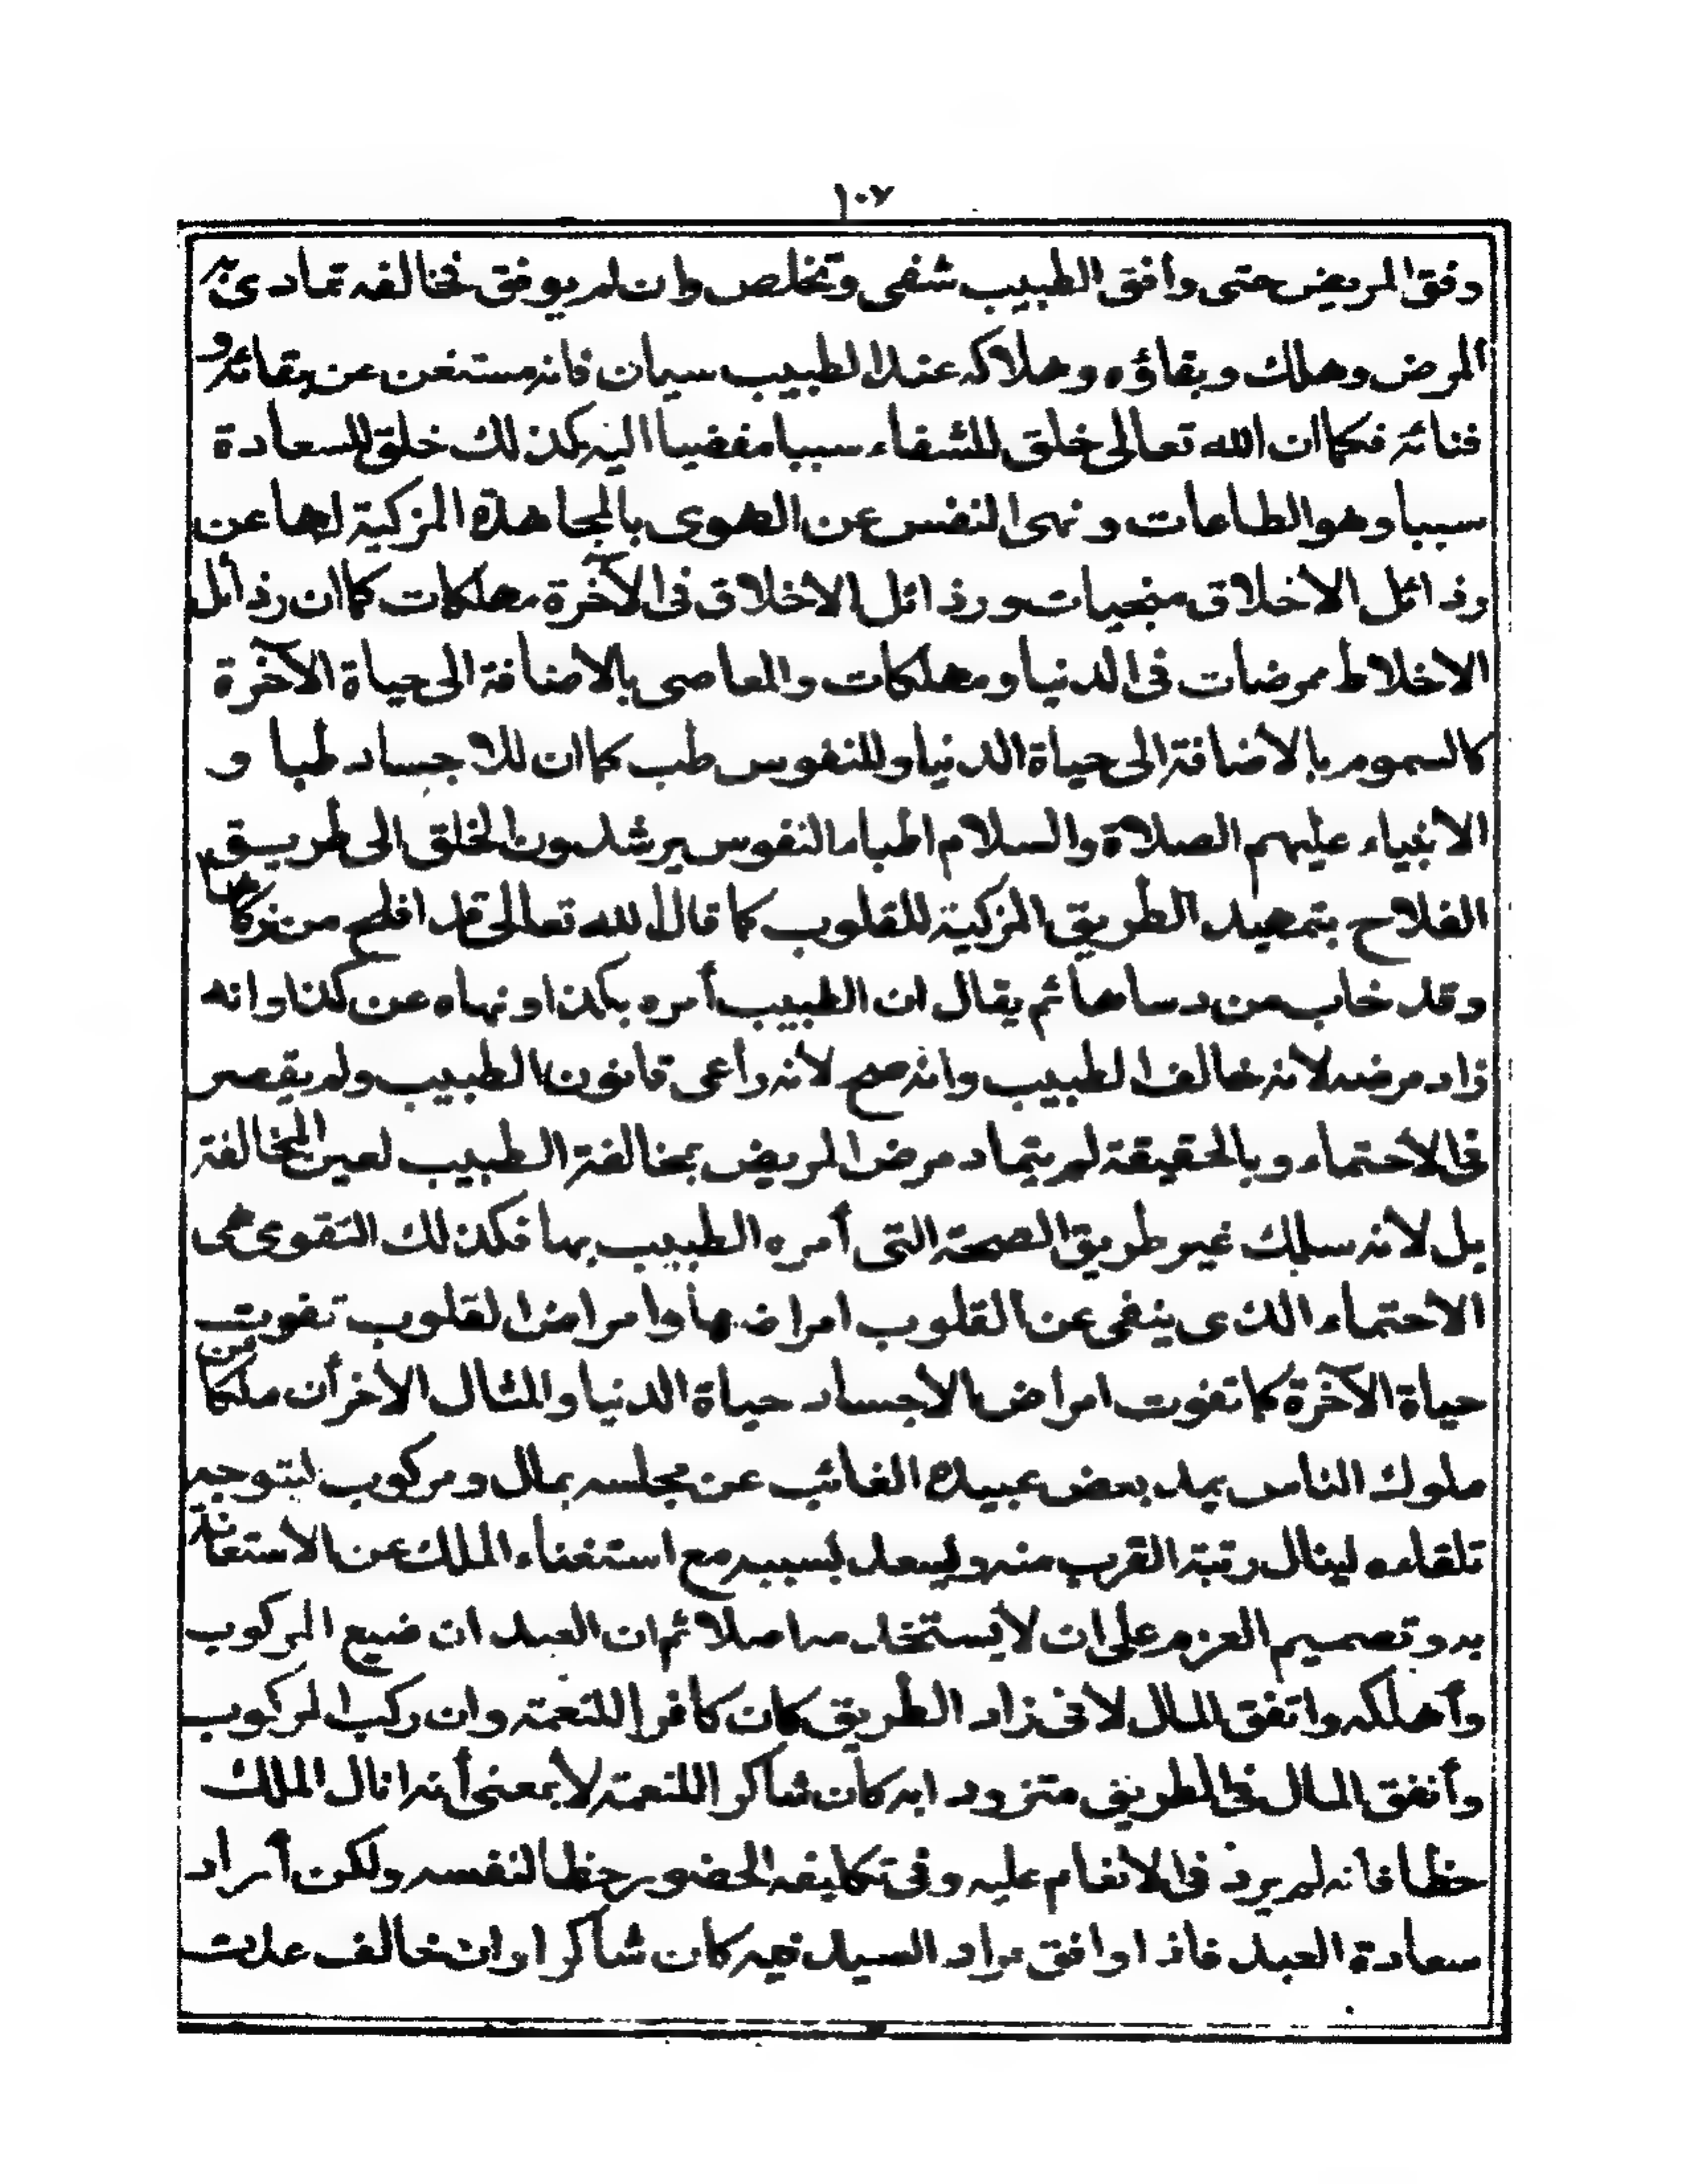 ١٠٧
وفق المريض حتى وافق الطبيب شفى وتخلص وان لم يوفق فخالفه تمادى به
المرض وهلك وبقاؤه وهلاكه عند الطبيب سيان فانه مستغن عن بقائه و
فنائه فكما ان الله تعالى خلق للشفاء سببا مفضيا اليه كذلك خلق للسعادة
سببا وهو الطاعات ونهى النفس عن الهوى بالمجاهدة المزكية لها عن
رذائل الاخلاق منجيات ورذائل الاخلاق فى الآخرة مهلكات كما ان رذائل
الاخلاط ممرضات فى الدنيا ومهلكات والمعاصى بالاضافة الى حياة الآخرة
كالسموم بالاضافة الى حياة الدنيا وللنفوس طب كما ان للاجساد طبا و
الانبياء عليهم الصلاة والسلام اطباء النفوس يرشدون الخلق الى طريق
الفلاح بتمهيد الطريق المزكية للقلوب كما قال الله تعالى قد افلح من زكاها
وقد خاب من دساها ثم يقال ان الطبيب أمره بكذا ونهاه عن كذا وانه
زاد مرضه لانه خالف الطبيب وانه صح لانه راعى قانون الطبيب ولم يقصر
فى الاحتماء وبالحقيقة لم يتماد مرض المريض بمخالفة الطبيب لعين المخالفة
بل لانه سلك غير طريق الصحة التى أمره الطبيب بها فكذلك التقوى هى
الاحتماء الذى ينفى عن القلوب امراضها وامراض القلوب تفوت
حياة الآخرة كما تفوت امراض الاجساد حياة الدنيا والمثال الآخر أن ملكا من
ملوك الناس يمد بعض عبيده الغائب عن مجلسه بمال ومركوب ليتوجه
تلقاءه لينال رتبة القرب منه ويسعد بسببه مع استغناء الملك عن الاستعانة
به وتصميم العزم على ان لا يستخدمه اصلا ثم ان العبد ان ضيع المركوب
وأهلكه واتفق المال لا فى زاد الطريق كان كافرا للنعمة وان ركب المركوب
وأنفق المال فى الطريق متزودا به كان شاكرا للنعمة لا بمعنى أنه انال الملك
حظا فانه لم يرد فى الانعام عليه وفى تكليفه الحضور حظا لنفسه ولكن أراد
سعادة العبد فاذا وافق مراد السيد فيه كان شاكرا وان خالف عدت